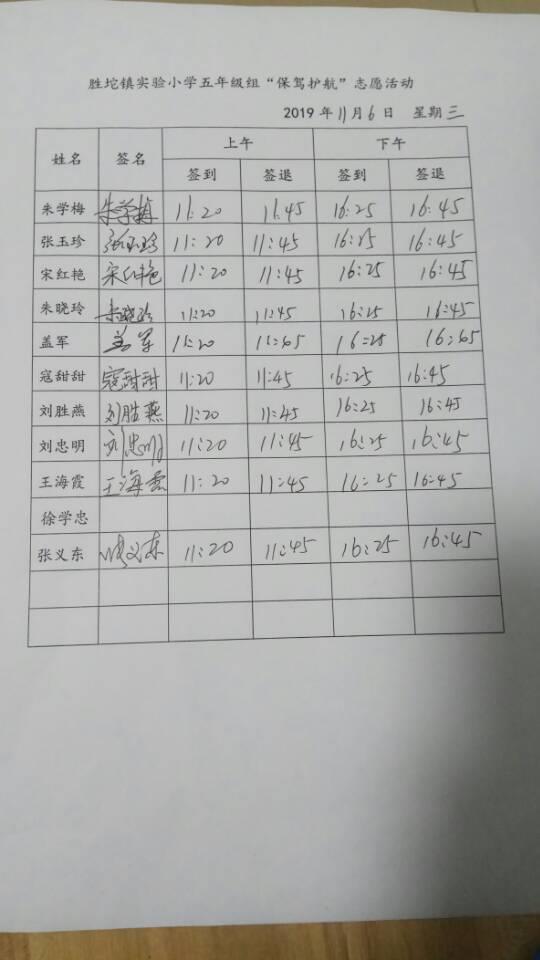 胜坨镇实验小学五年级组“保驾护航”志愿活动
2019 年 11 月 6 日 星期 三
姓名 签名 上午 下午
签到 签退 签到 签退
朱学梅 朱学梅 11:20 11:45 16:25 16:45
张玉珍 张玉珍 11:20 11:45 16:25 16:45
宋红艳 宋红艳 11:20 11:45 16:25 16:45
朱晓玲 朱晓玲 11:20 11:45 16:25 16:45
盖军 盖军 11:20 11:45 16:25 16:45
寇甜甜 寇甜甜 11:20 11:45 16:25 16:45
刘胜燕 刘胜燕 11:20 11:45 16:25 16:45
刘忠明 刘忠明 11:20 11:45 16:25 16:45
王海霞 王海霞 11:20 11:45 16:25 16:45
徐学忠
张义东 张义东 11:20 11:45 16:25 16:45